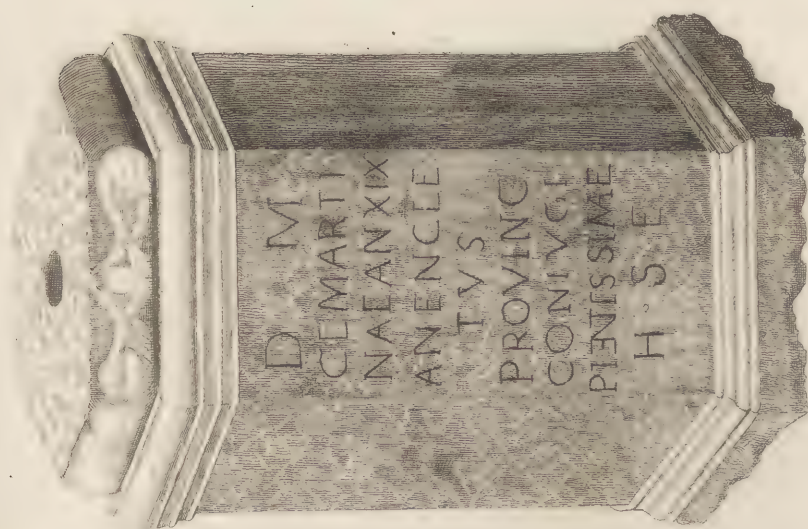 D M
CL MARTI
NAE AN XIX
ANENCLE
TVS
PROVINC
CONIVGI
PIENTISSIME
H · S · E